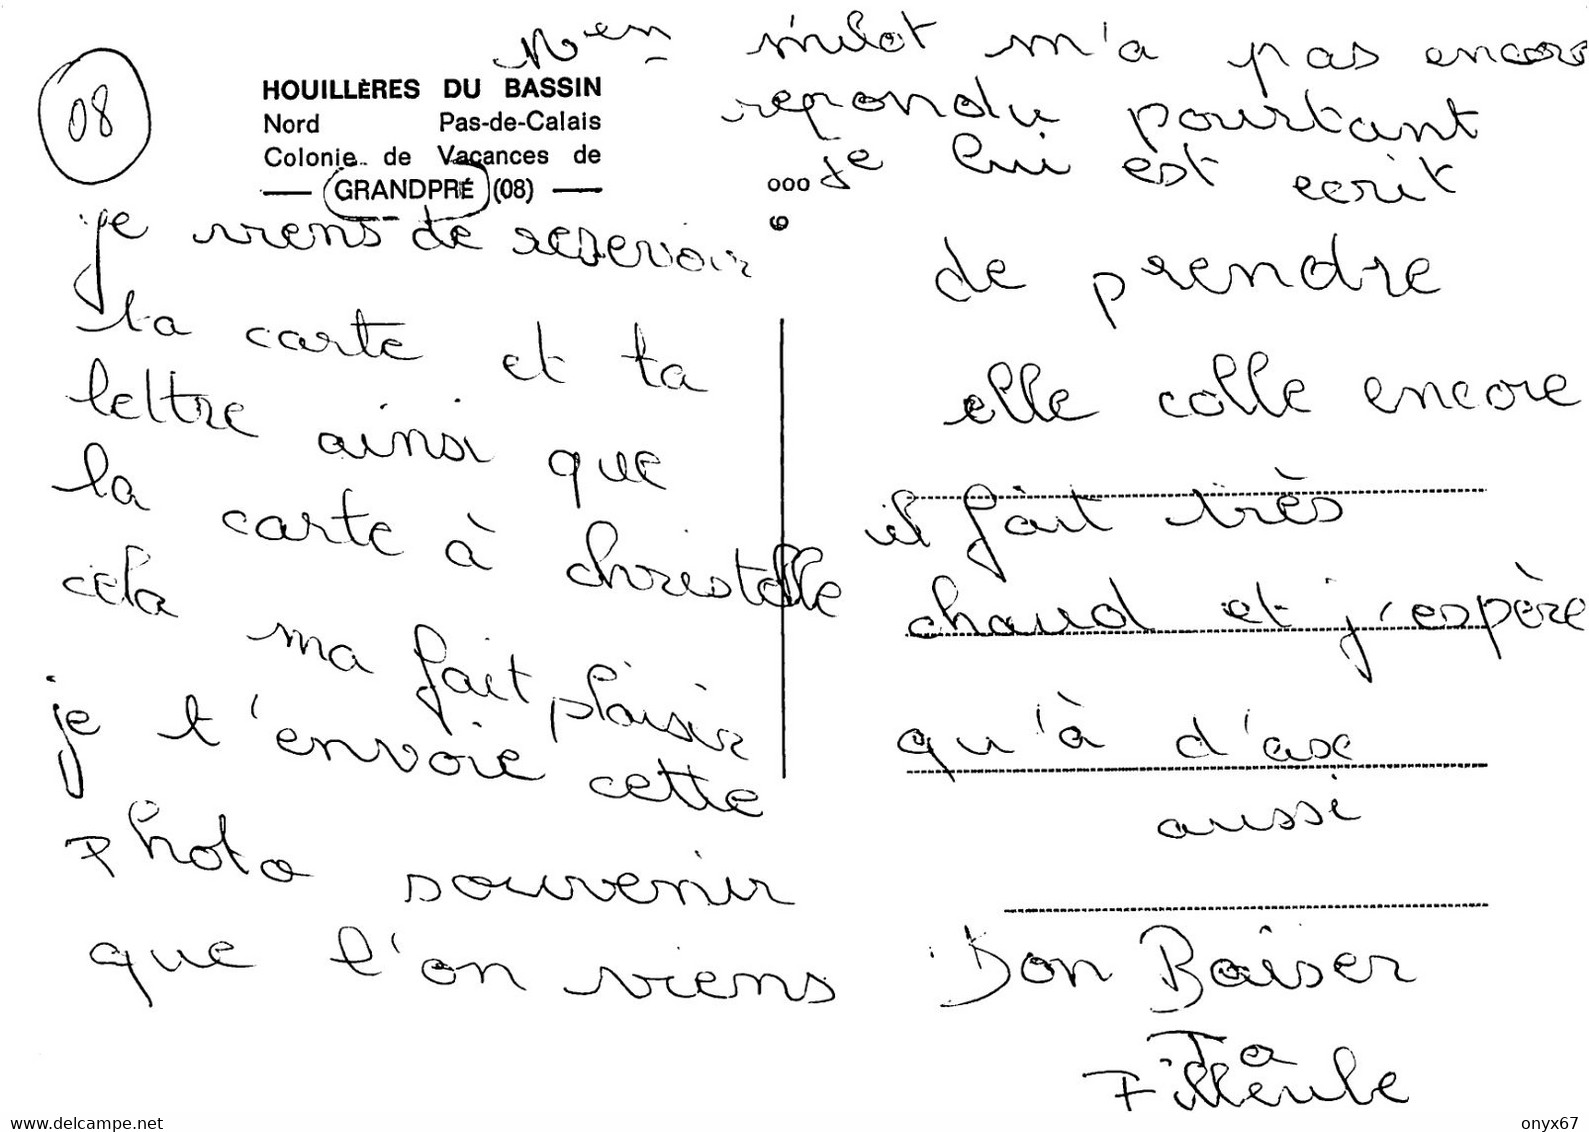 08
HOUILLÈRES DU BASSIN
Nord Pas-de-Calais
Colonie de Vacances de
GRANDPRÉ (08)
je viens de recevoir
ta carte et ta
lettre ainsi que
la carte à christelle
cela ma fait plaisir
je t'envoie cette
Photo souvenir
que l'on viens
de prendre
elle colle encore
il fait très
chaud et j'espère
qu'à d'asc
aussi
Bon Baiser
Ta
Filleule
m'a pas encore
repondu pourtant
Je lui est ecrit
www.delcampe.net
onyx67